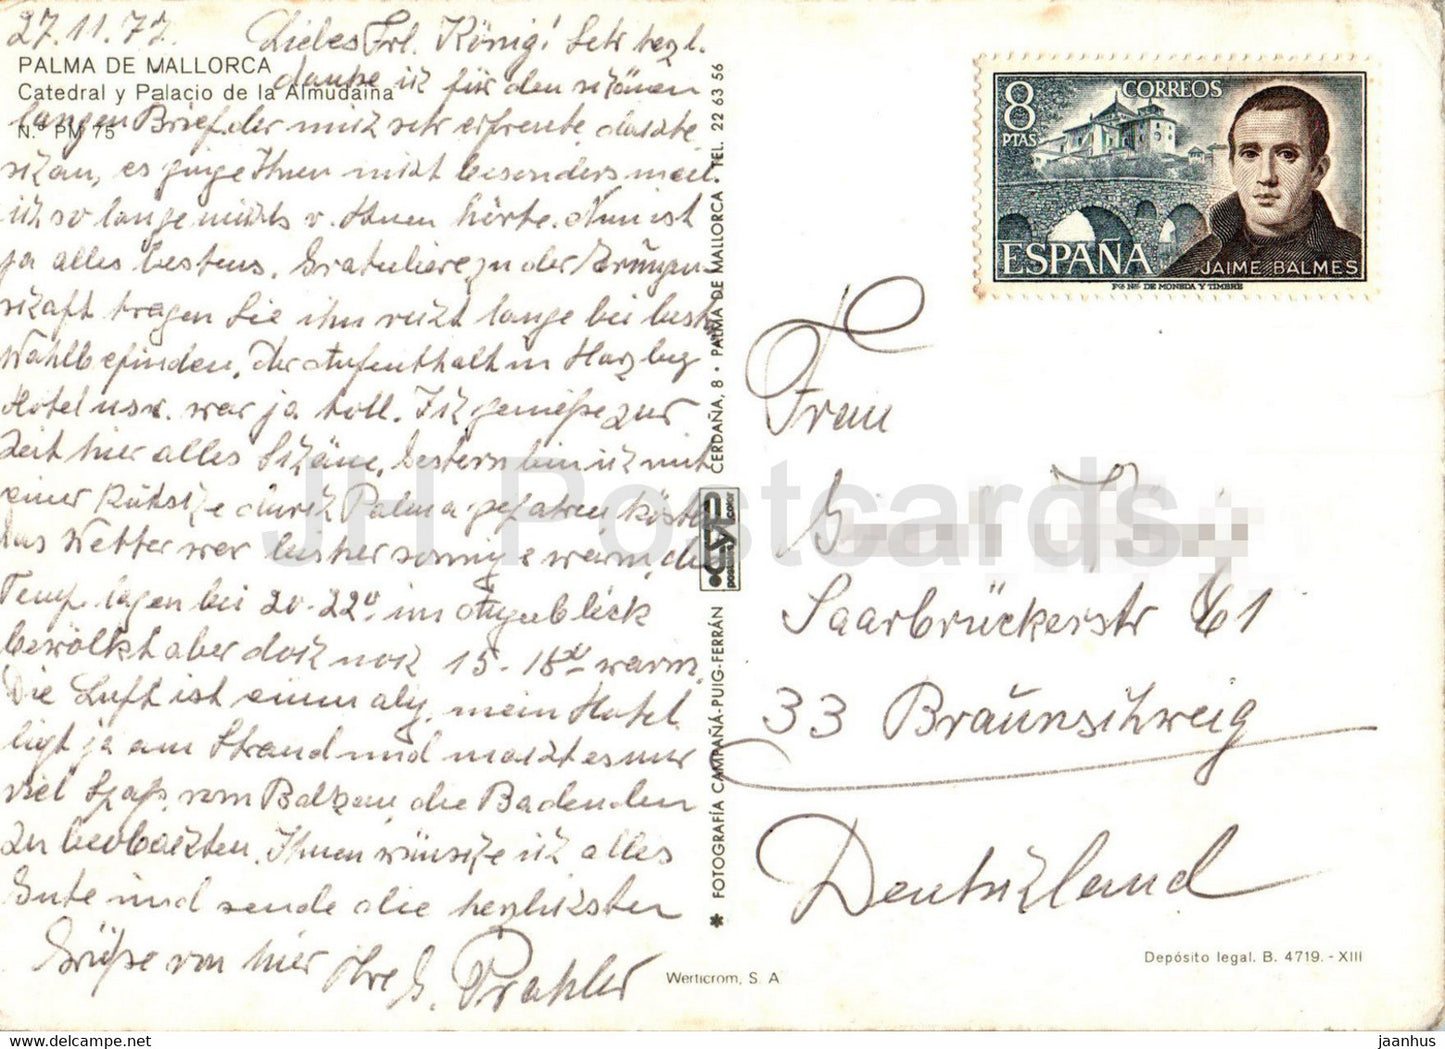 27.11.77. Liebes Frl. König! Sehr herzl.
PALMA DE MALLORCA
danke ich für den schönen
Catedral y Palacio de la Almudaina
langen Brief, der mich sehr erfreute, dachte
N.º PM 75
schon, es ginge Ihnen nicht besonders weil
ich so lange nichts v. Ihnen hörte. Nun ist
ja alles bestens. Gratuliere zu der
schaft tragen Sie ihn recht lange bei best.
Wohlbefinden. Der Aufenthalt in Harzbg
Hotel usw. war ja toll. Ich genieße zur
Zeit hier alles Schöne. Gestern bin ich mit
einer durch Palma gefahren,
das Wetter war bisher sonnig & warm, die
Temp. lagen bei 20-22° im Augenblick
bewölkt aber doch noch 15-18° warm.
Die Luft ist einmalig, mein Hotel
ligt ja am Strand und macht es mir
viel Spaß, vom Balkon die Badenden
zu beobachten. Ihnen wünsche ich alles
Gute und sende die herzlichsten
Grüße von hier Ihre G. Prahler
CERDAÑA, 8 • PALMA DE MALLORCA • TEL. 22 63 56
✱ FOTOGRAFÍA CAMPAÑÁ-PUIG-FERRÁN
Werticrom, S. A
8
PTAS
CORREOS
ESPAÑA
JAIME BALMES
Fca Nal DE MONEDA Y TIMBRE
Frau
Saarbrückerstr 61
33 Braunschweig
Deutschland
Depósito legal. B. 4719. - XIII
JH Postcards
https://jhpostcards.com
jaanhus